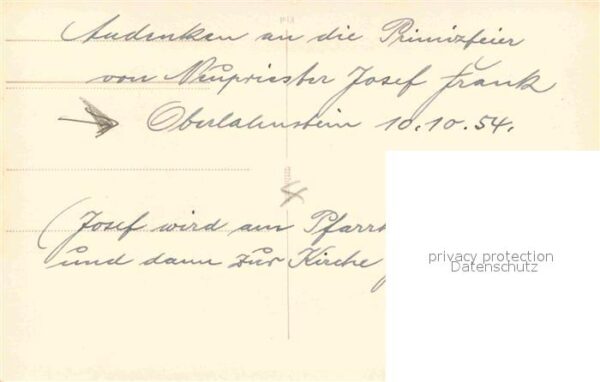 Andenken an die Primizfeier
von Neupriester Josef Frank
Oberlahnstein 10.10.54.
4
(Josef wird am
und dann zur Kirche
privacy protection
Datenschutz